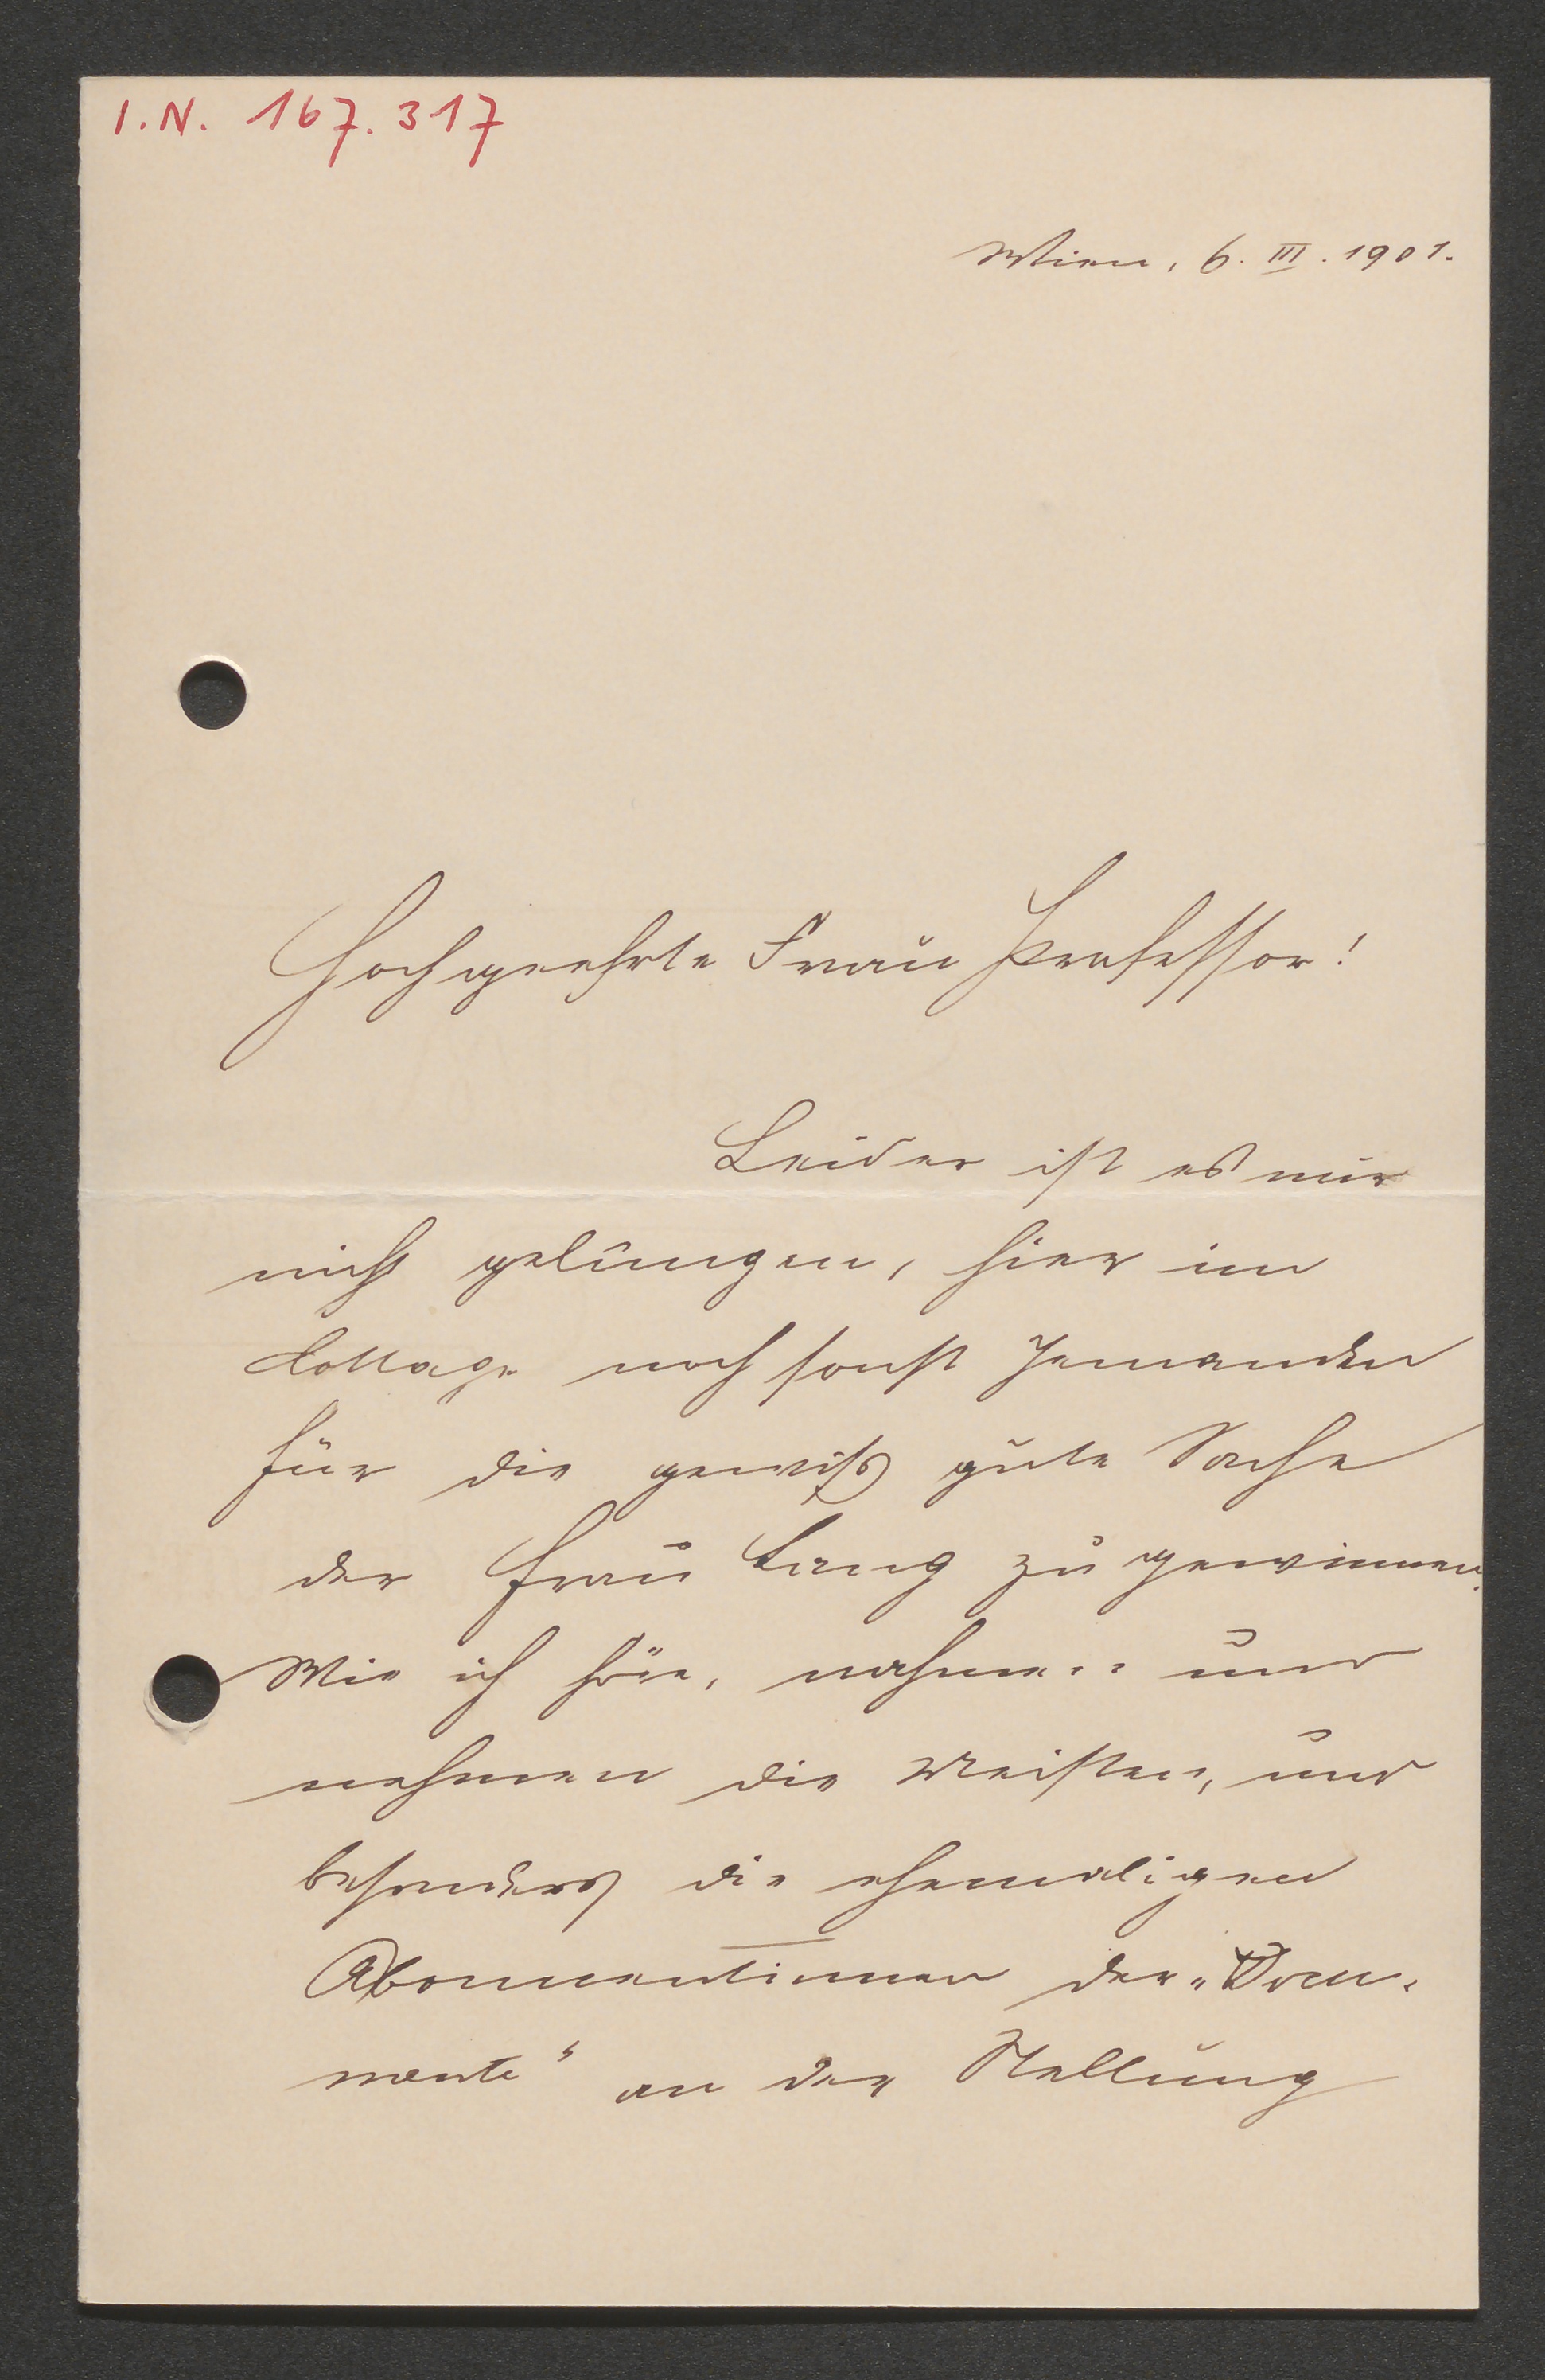 I.N. 167.317
Wien, 6. III. 1901.
Hochgeehrte Frau Professor!
Leider ist es mir
nicht gelungen, hier im
Cottage noch sonst Jemanden
für die gewiß gute Sache
der Frau Lang zu gewinnen.
Wie ich höre, nahmen und
nehmen die Meisten, und
besonders die ehemaligen
Abonnentinnen der „Docu-
mente“ an der Stellung